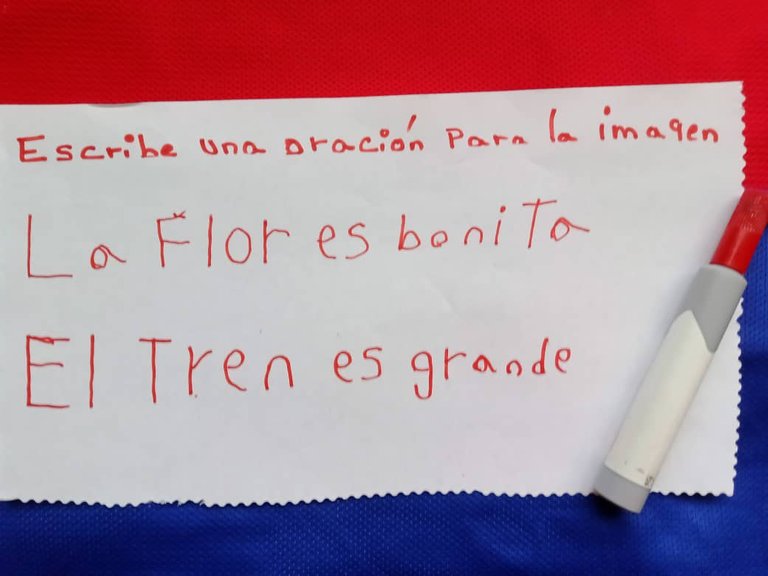 Escribe una oración para la imagen
La Flor es boniTa
El Tren es grande